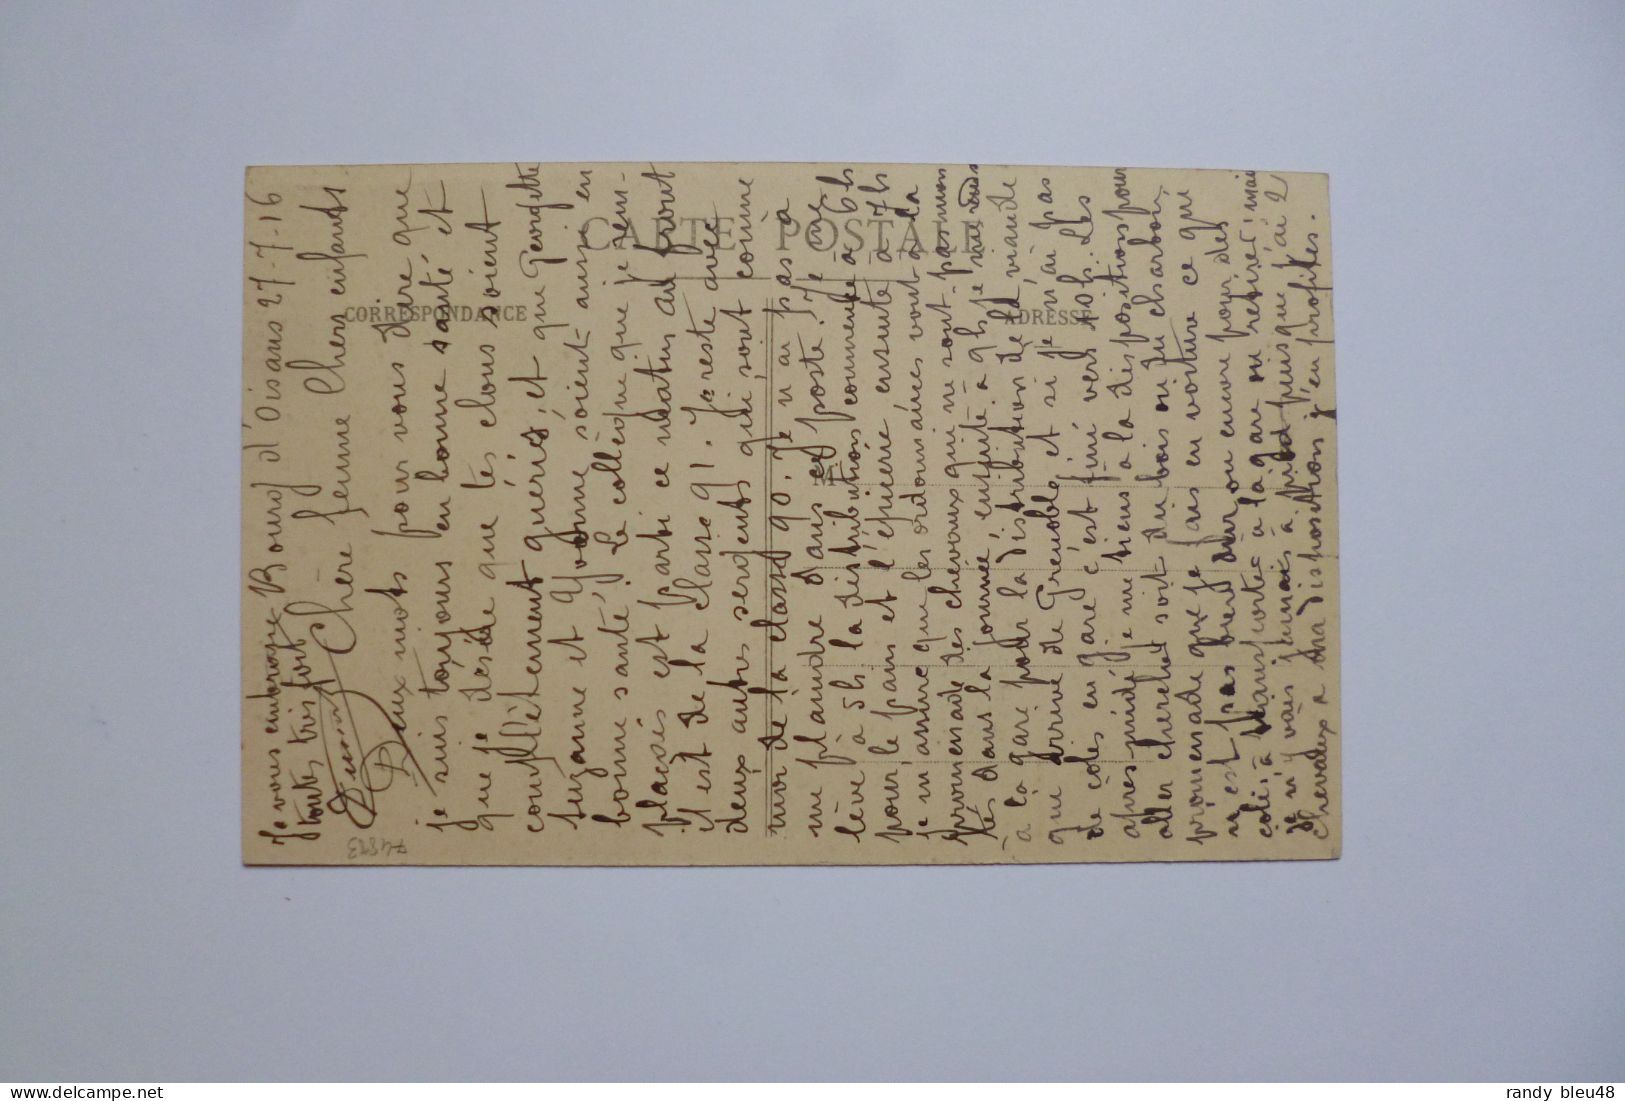 Bourg d'Oisans 27-7-16
Chère femme Chers enfants
Deux mots pour vous dire que
je suis toujours en bonne santé et
que je désire que tes clous soient
complètement guéris, et que Georgette
Suzanne et Yvonne soient aussi en
bonne santé, le collègue que je rem-
placais est parti ce matin au front
il est de la classe 91. Je reste avec
deux autres sergents qui sont comme
moi de la classe 90. Je n'ai pas à
me plaindre dans ce poste. Je me
lève à 5h la distributions commence à 6h
pour le pain et l'épicerie ensuite à 7h
je m'assure que les ordonnances vont à la
promenade des chevaux qui ne sont pas mon
tés dans la journée, ensuite à 9h je me rends
à la gare pour la distribution de la viande
qui arrive de Grenoble et si je n'ai pas
de colis en gare c'est fini vers 10h. Les
après-midi je me tiens à la disposition pour
aller chercher soit du bois ou du charbon,
promenade que je fais en voiture ce qui
n'est pas bien dur ou encore pour des
colis à transporter à la gare ou retirer mai
je n'y vais jamais à pied puisque j'ai 2
chevaux à ma disposition j'en profites.
Je vous embrasse
toutes très fort
CARTE POSTALE
CORRESPONDANCE
ADRESSE
M
74883
www.delcampe.net
randy bleu48